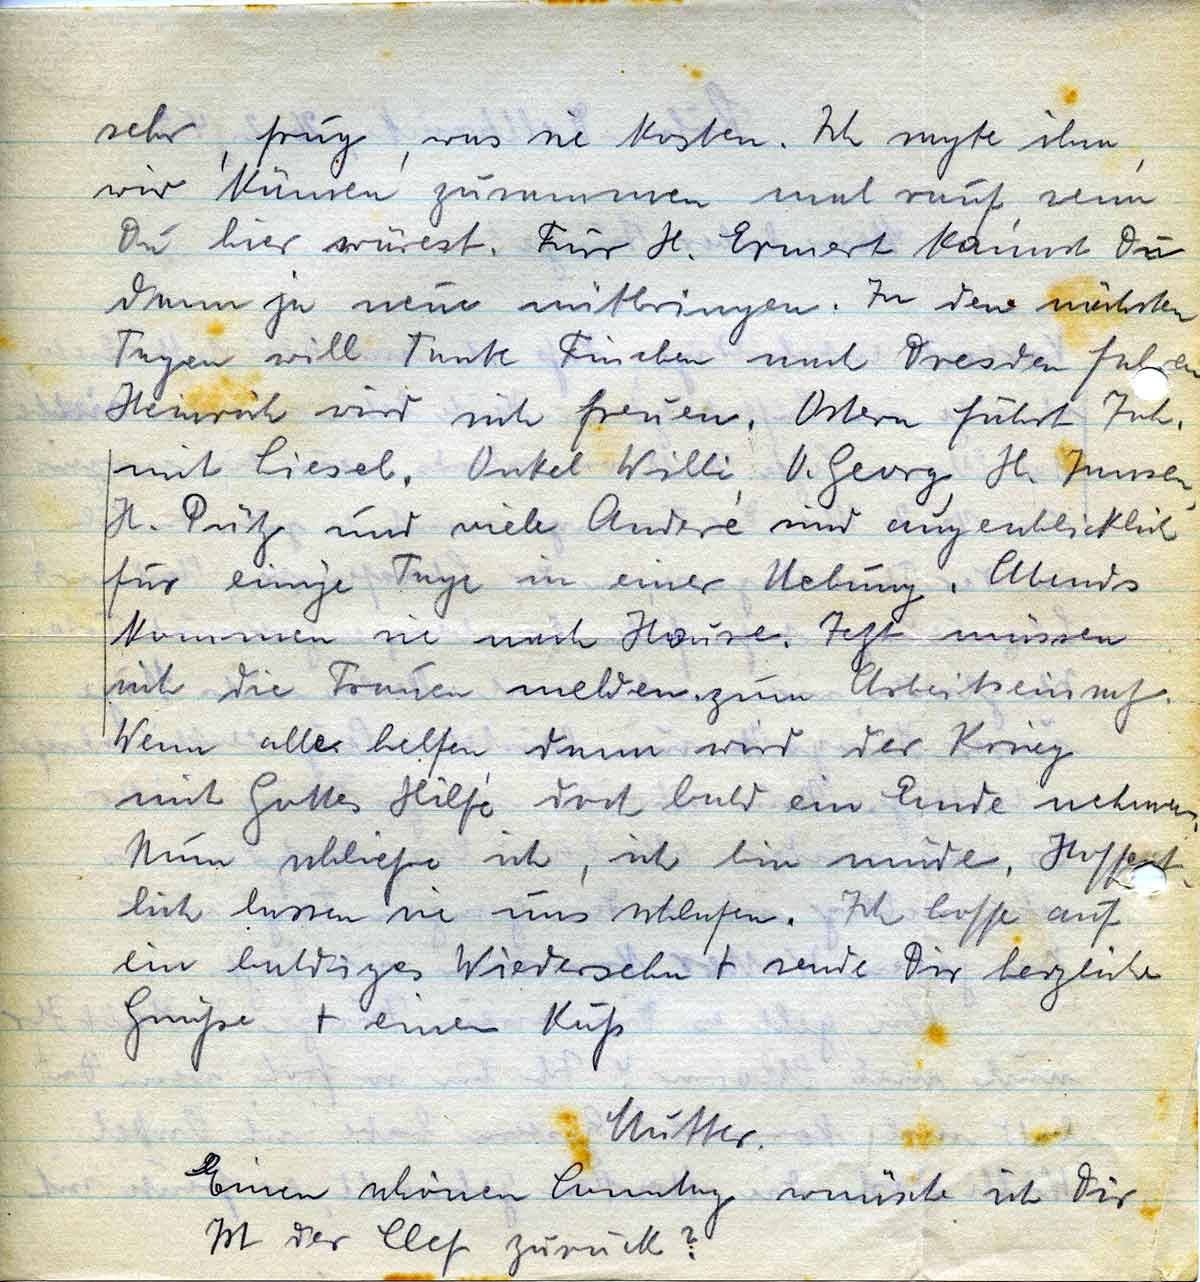 sehr, frug, was sie kosten. Ich sagte ihm,
wir kämen zusammen mal rauf, wenn
Du hier wärest. Für H. Ermert kannst Du
dann ja neue mitbringen. In den nächsten
Tagen will Tante Finchen nach Dresden fahren
Heinrich wird sich freuen. Ostern fährt Joh.
mit Liesel. Onkel Willi, O. Georg, H. Jansen,
H. Pütz und viele Andere sind augenblicklich
für einige Tage in einer Uebung. Abends
kommen sie nach Hause. Jetzt müssen
sich die Frauen melden zum Arbeitseinsatz.
Wenn alles helfen dann wird der Krieg
mit Gottes Hilfe doch bald ein Ende nehmen.
Nun schließe ich, ich bin müde. Hoffent-
lich lassen sie uns schlafen. Ich hoffe auf
ein baldiges Wiedersehn + sende Dir herzliche
Grüße + einen Kuß
Mutter.
Einen schönen Sonntag wünsche ich Dir
Ist der Chef zurück?